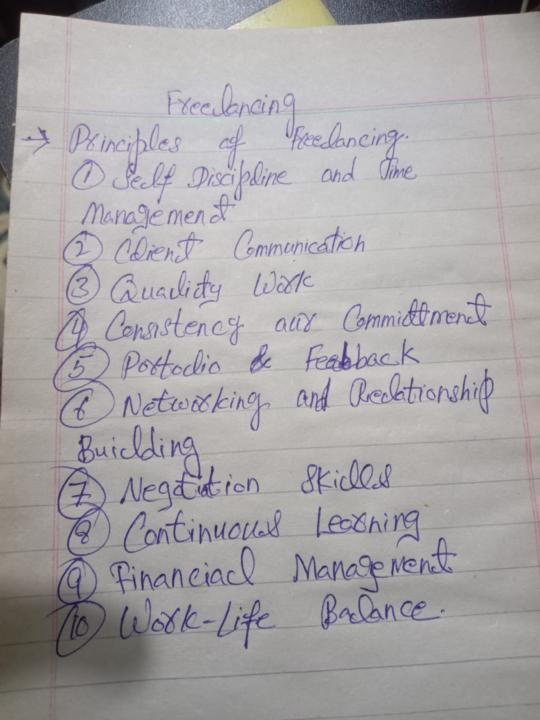 Freelancing
→ Principles of Freelancing.
① Self Discipline and Time
Management
② Client Communication
③ Quality Work
④ Consistency aur Committment
⑤ Portfolio & Feedback
⑥ Networking and Relationship
Building
⑦ Negotiation Skills
⑧ Continuous Learning
⑨ Financial Management
⑩ Work-Life Balance.